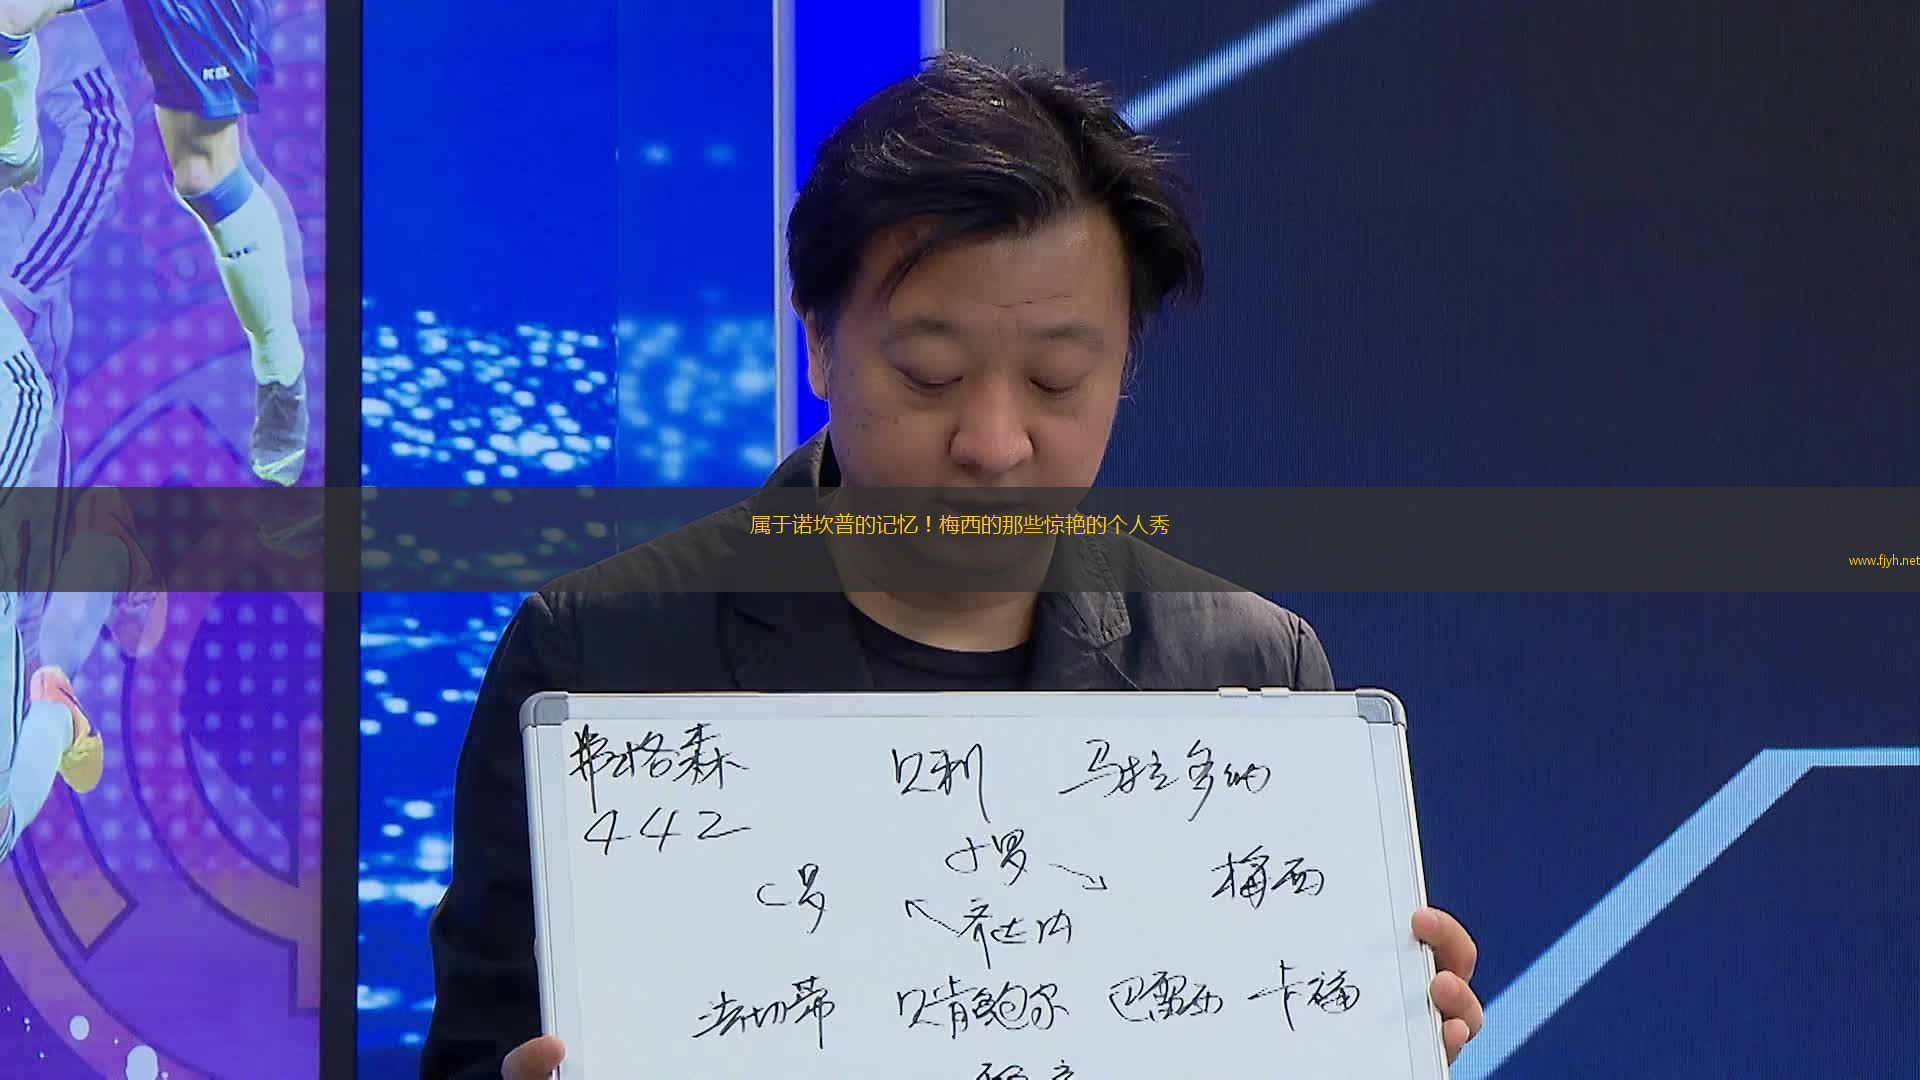 属于诺坎普的记忆！梅西的那些惊艳的个人秀
www.fjyh.net
弗格森 贝利 马拉多纳
442
小罗
C罗 梅西
齐达内
法切蒂 贝肯鲍尔 巴雷西 卡福